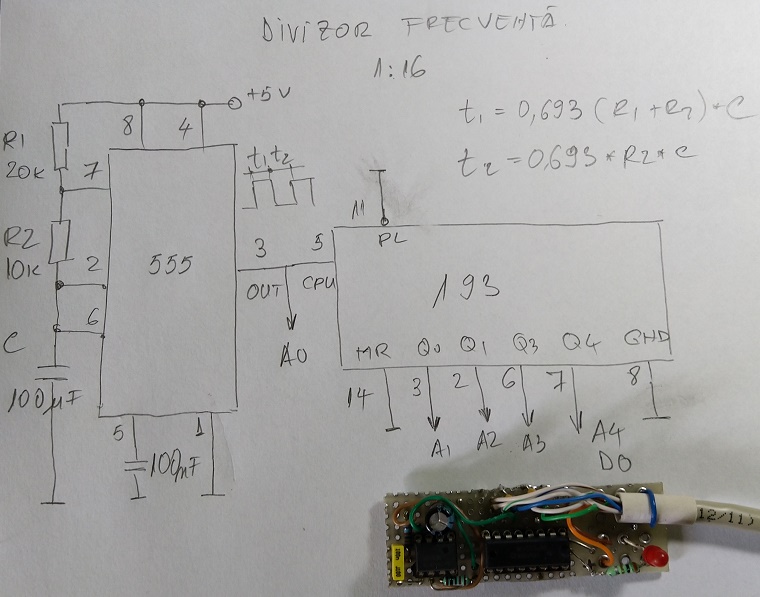 DIVIZOR FRECVENȚĂ.
1:16
+5V
t1 = 0,693 (R1+R2)*C
t2 = 0,693*R2*C
8
4
R1
20K
7
t1 t2
11
PL
R2
10K
2
555
3
5
OUT
CPU
193
6
A0
C
100µF
MR
Q0
Q1
Q3
Q4
GND
14
3
2
6
7
8
5
1
100nF
A1
A2
A3
A4
D0
12/11)